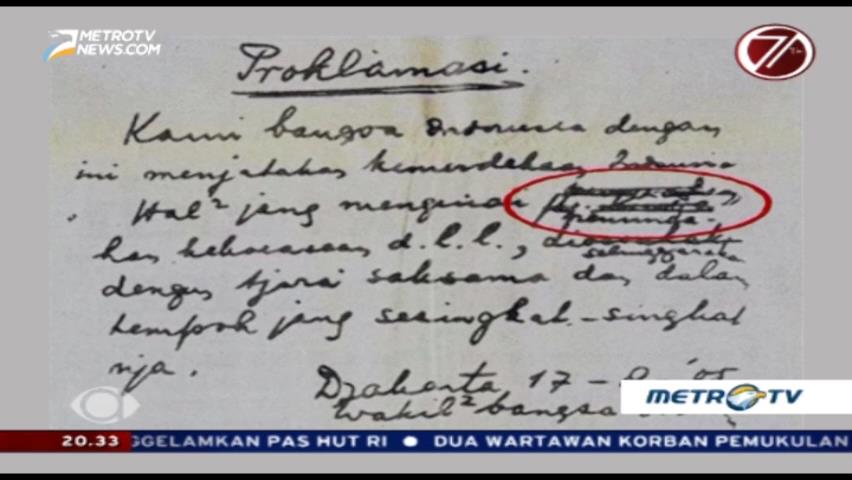 METROTV
NEWS.COM
71
TH
Proklamasi.
Kami bangsa Indonesia dengan
ini menjatakan kemerdekaan
Hal² jang mengenai
pemindahan
kan kekoeasaan d.l.l.,
diselenggarakan
dengan tjara saksama dan dalam
tempoh jang sesingkat-singkat
nja.
Djakarta 17 - 8 - '05
Wakil² bangsa
METROTV
20.33 GGELAMKAN PAS HUT RI ● DUA WARTAWAN KORBAN PEMUKULAN